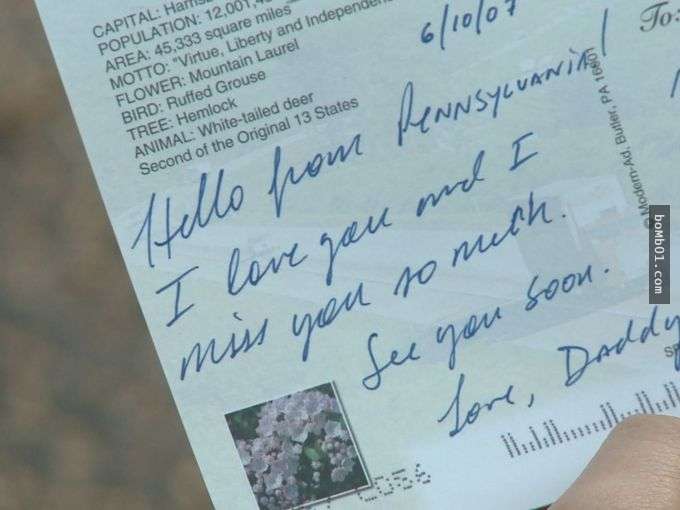 CAPITAL:
POPULATION:
AREA: 45,333 square miles
MOTTO: "Virtue, Liberty and
FLOWER: Mountain Laurel
BIRD: Ruffed Grouse
TREE: Hemlock
ANIMAL: White-tailed deer
Second of the Original 13 States
6/10/07
To:
Hello from PENNSYLVANIA!
I love you and I
miss you so much.
See you soon.
Love, DADDY
© Modern-Ad, Butler, PA 16001
boMb01.com